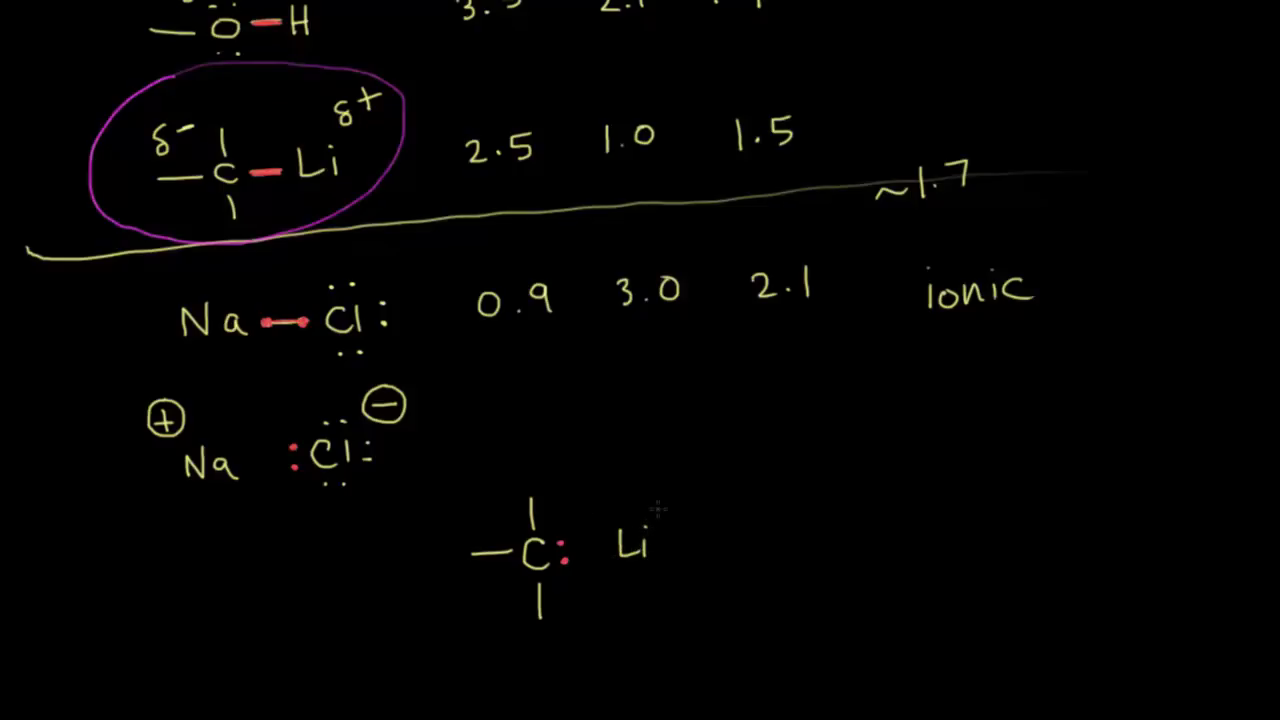 O H
δ- C Li δ+ 2.5 1.0 1.5
~1.7
Na Cl 0.9 3.0 2.1 ionic
+ −
Na Cl
C Li